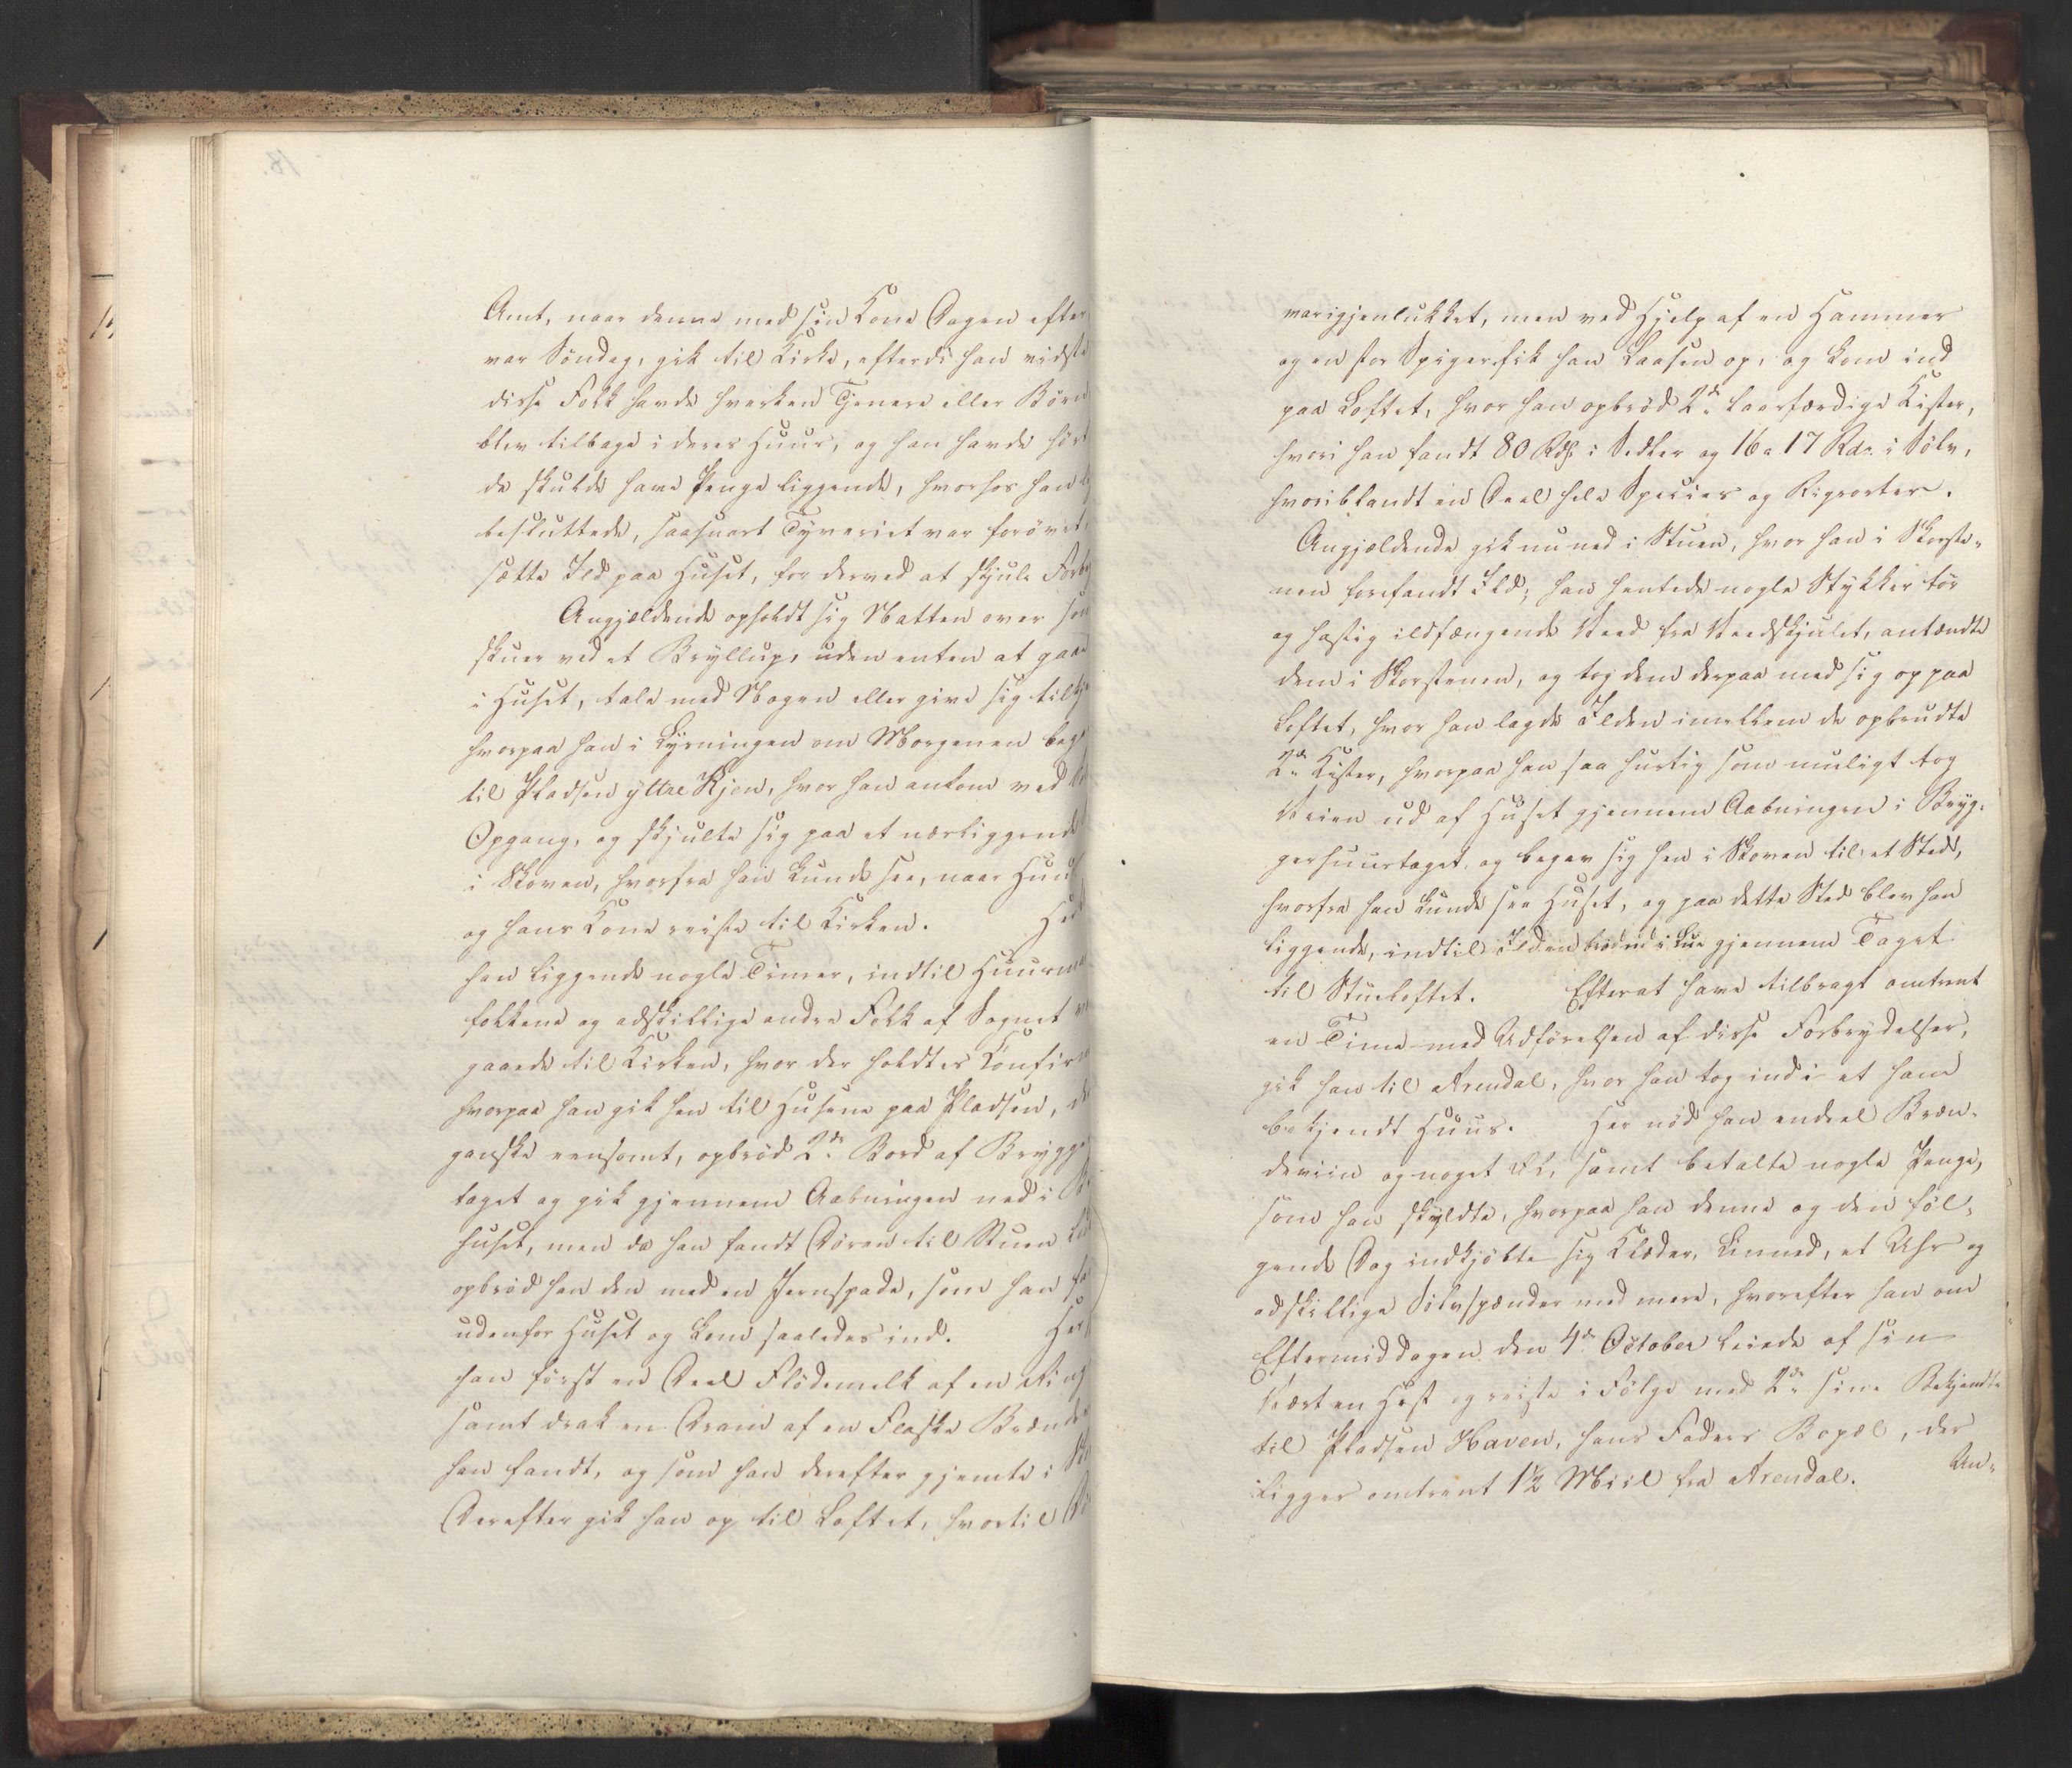 Amt, naar denne med sin Kone Dagen efter
var Søndag, gik til Kirke, efterdi han vidste
disse Folk havde hverken Tjenere eller Børn
blev tilbage i deres Huus, og han havde hørt
de skulde have Penge liggende, hvorhos han
besluttede, saasnart Tyveriet var forøvet,
sætte Ild paa Huset, for derved at skjule
Angjældende opholdt sig Natten over som
skuer ved et Bryllup, uden enten at gaae
i Huset, tale med Nogen eller give sig
hvorpaa han i Lysningen om Morgenen
til Pladsen yttre Kjen, hvor han ankom ved
Opgang, og skjulte sig paa et nærliggende
i Skoven, hvorfra han kunde see, naar
og hans Kone reiste til Kirken.
han liggende nogle Timer, indtil
folkene og adskillige andre Folk af Sognet
gaaede til Kirken, hvor der holdtes
hvorpaa han gik hen til Husene paa Pladsen,
ganske eensomt, opbrød 2de Bord af
taget og gik gjennem Aabningen ned i
huset, men da han fandt Døren til Stuen
opbrød han den med en Jernspade, som han
udenfor Huset og kom saaledes ind. Her
han først en Deel Flødemelk af en
samt drak en Dram af en Flaske
han fandt, og som han derefter gjemte i
Derefter gik han op til Loftet, hvortil
var igjenlukket, men ved Hjelp af en Hammer
og en stor Spiger fik han Laasen op, og kom ind
paa Loftet, hvor han opbrød 2de laasfærdige Kister,
hvori han fandt 80 Rdlr i Sedler og 16 a 17 Rdr. i Sølv,
hvoriblandt en Deel hele Species og Rigsorter.
Angjældende gik nu ned i Stuen, hvor han i Skorste-
nen forefandt Ild; han hentede nogle Stykker tør
og hastig ildfængende Veed fra Veedskjulet, antændte
dem i Skorstenen, og tog dem derpaa med sig op paa
Loftet, hvor han lagde Ilden imellem de opbrudte
2de Kister, hvorpaa han saa hurtig som muligt tog
Veien ud af Huset gjennem Aabningen i Bryg-
gerhuustaget og begav sig hen i Skoven til et Sted,
hvorfra han kunde see Huset, og paa dette Sted blev han
liggende, indtil Ilden brød ud i Lue gjennem Taget
til Stueloftet. Efterat have tilbragt omtrent
en Time med Udførelsen af disse Forbrydelser,
gik han til Arendal, hvor han tog ind i et ham
bekjendt Huus. Her nød han endeel Bræn-
deviin og noget Øl, samt betalte nogle Penge,
som han skyldte, hvorpaa han denne og den føl-
gende Dag indkjøbte sig Klæder, Linned, et Uhr og
adskillige Sølvspænder med mere, hvorefter han om
Eftermiddagen den 4de October leiede af sin
Vært en Hest og reiste i Følge med 2de sine Bekjendte
til Pladsen Haven, hans Faders Bopæl, der
ligger omtrent 1½ Miil fra Arendal.
An-